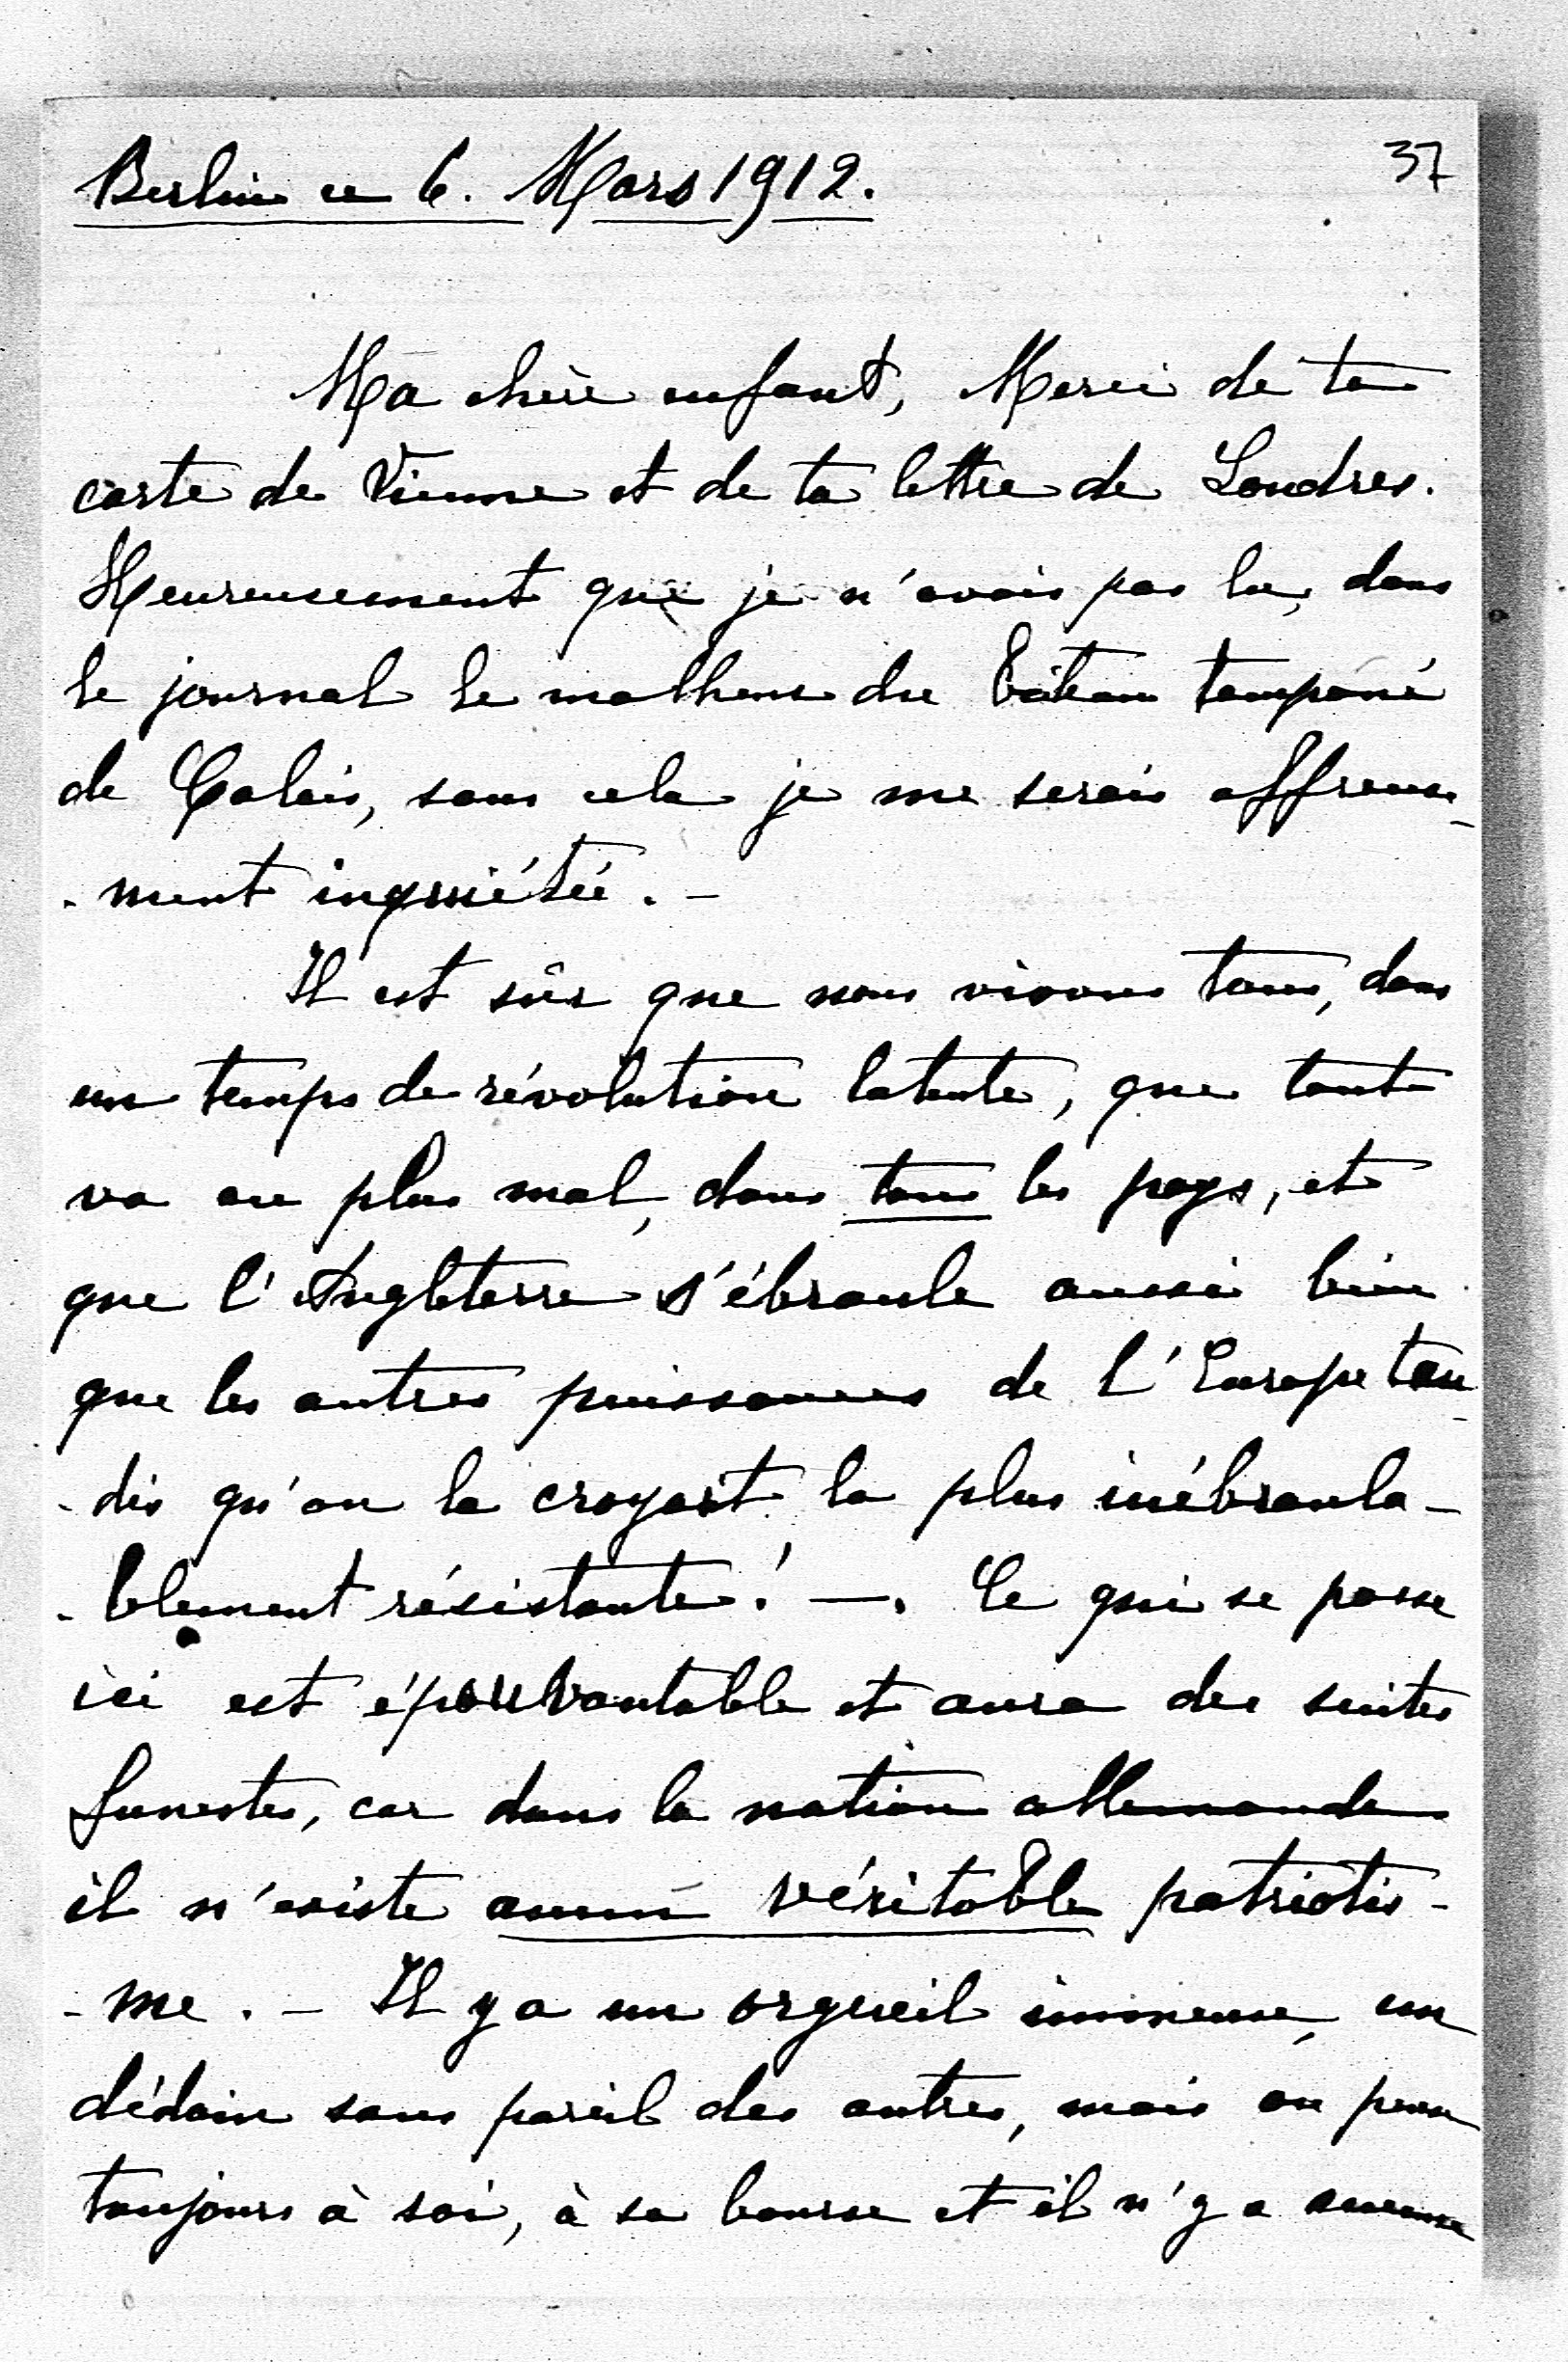 37
Berlin ce 6. Mars 1912.
Ma chère enfant, Merci de ta
carte de Vienne et de ta lettre de Londres.
Heureusement que je n'avais pas lu, dans
le journal le malheur du bâteau tamponé
de Calais, sans cela je me serais affreuse-
-ment inquiétée. -
Il est sûr que nous vivons tous, dans
un temps de révolution latente, que tout
va au plus mal, dans tous les pays, et
que l'Angleterre s'ébranle aussi bien
que les autres puissances de l'Europe tan-
-dis qu'on la croyait la plus inébranla-
-blement résistante! —. Ce qui se passe
ici est épouvantable et aura des suites
funestes, car dans la nation allemande
il n'existe aucun véritable patriotis-
-me. - Il y a un orgueil immense, un
dédain sans pareil des autres, mais on pense
toujours à soi, à sa bourse et il n'y a aucune